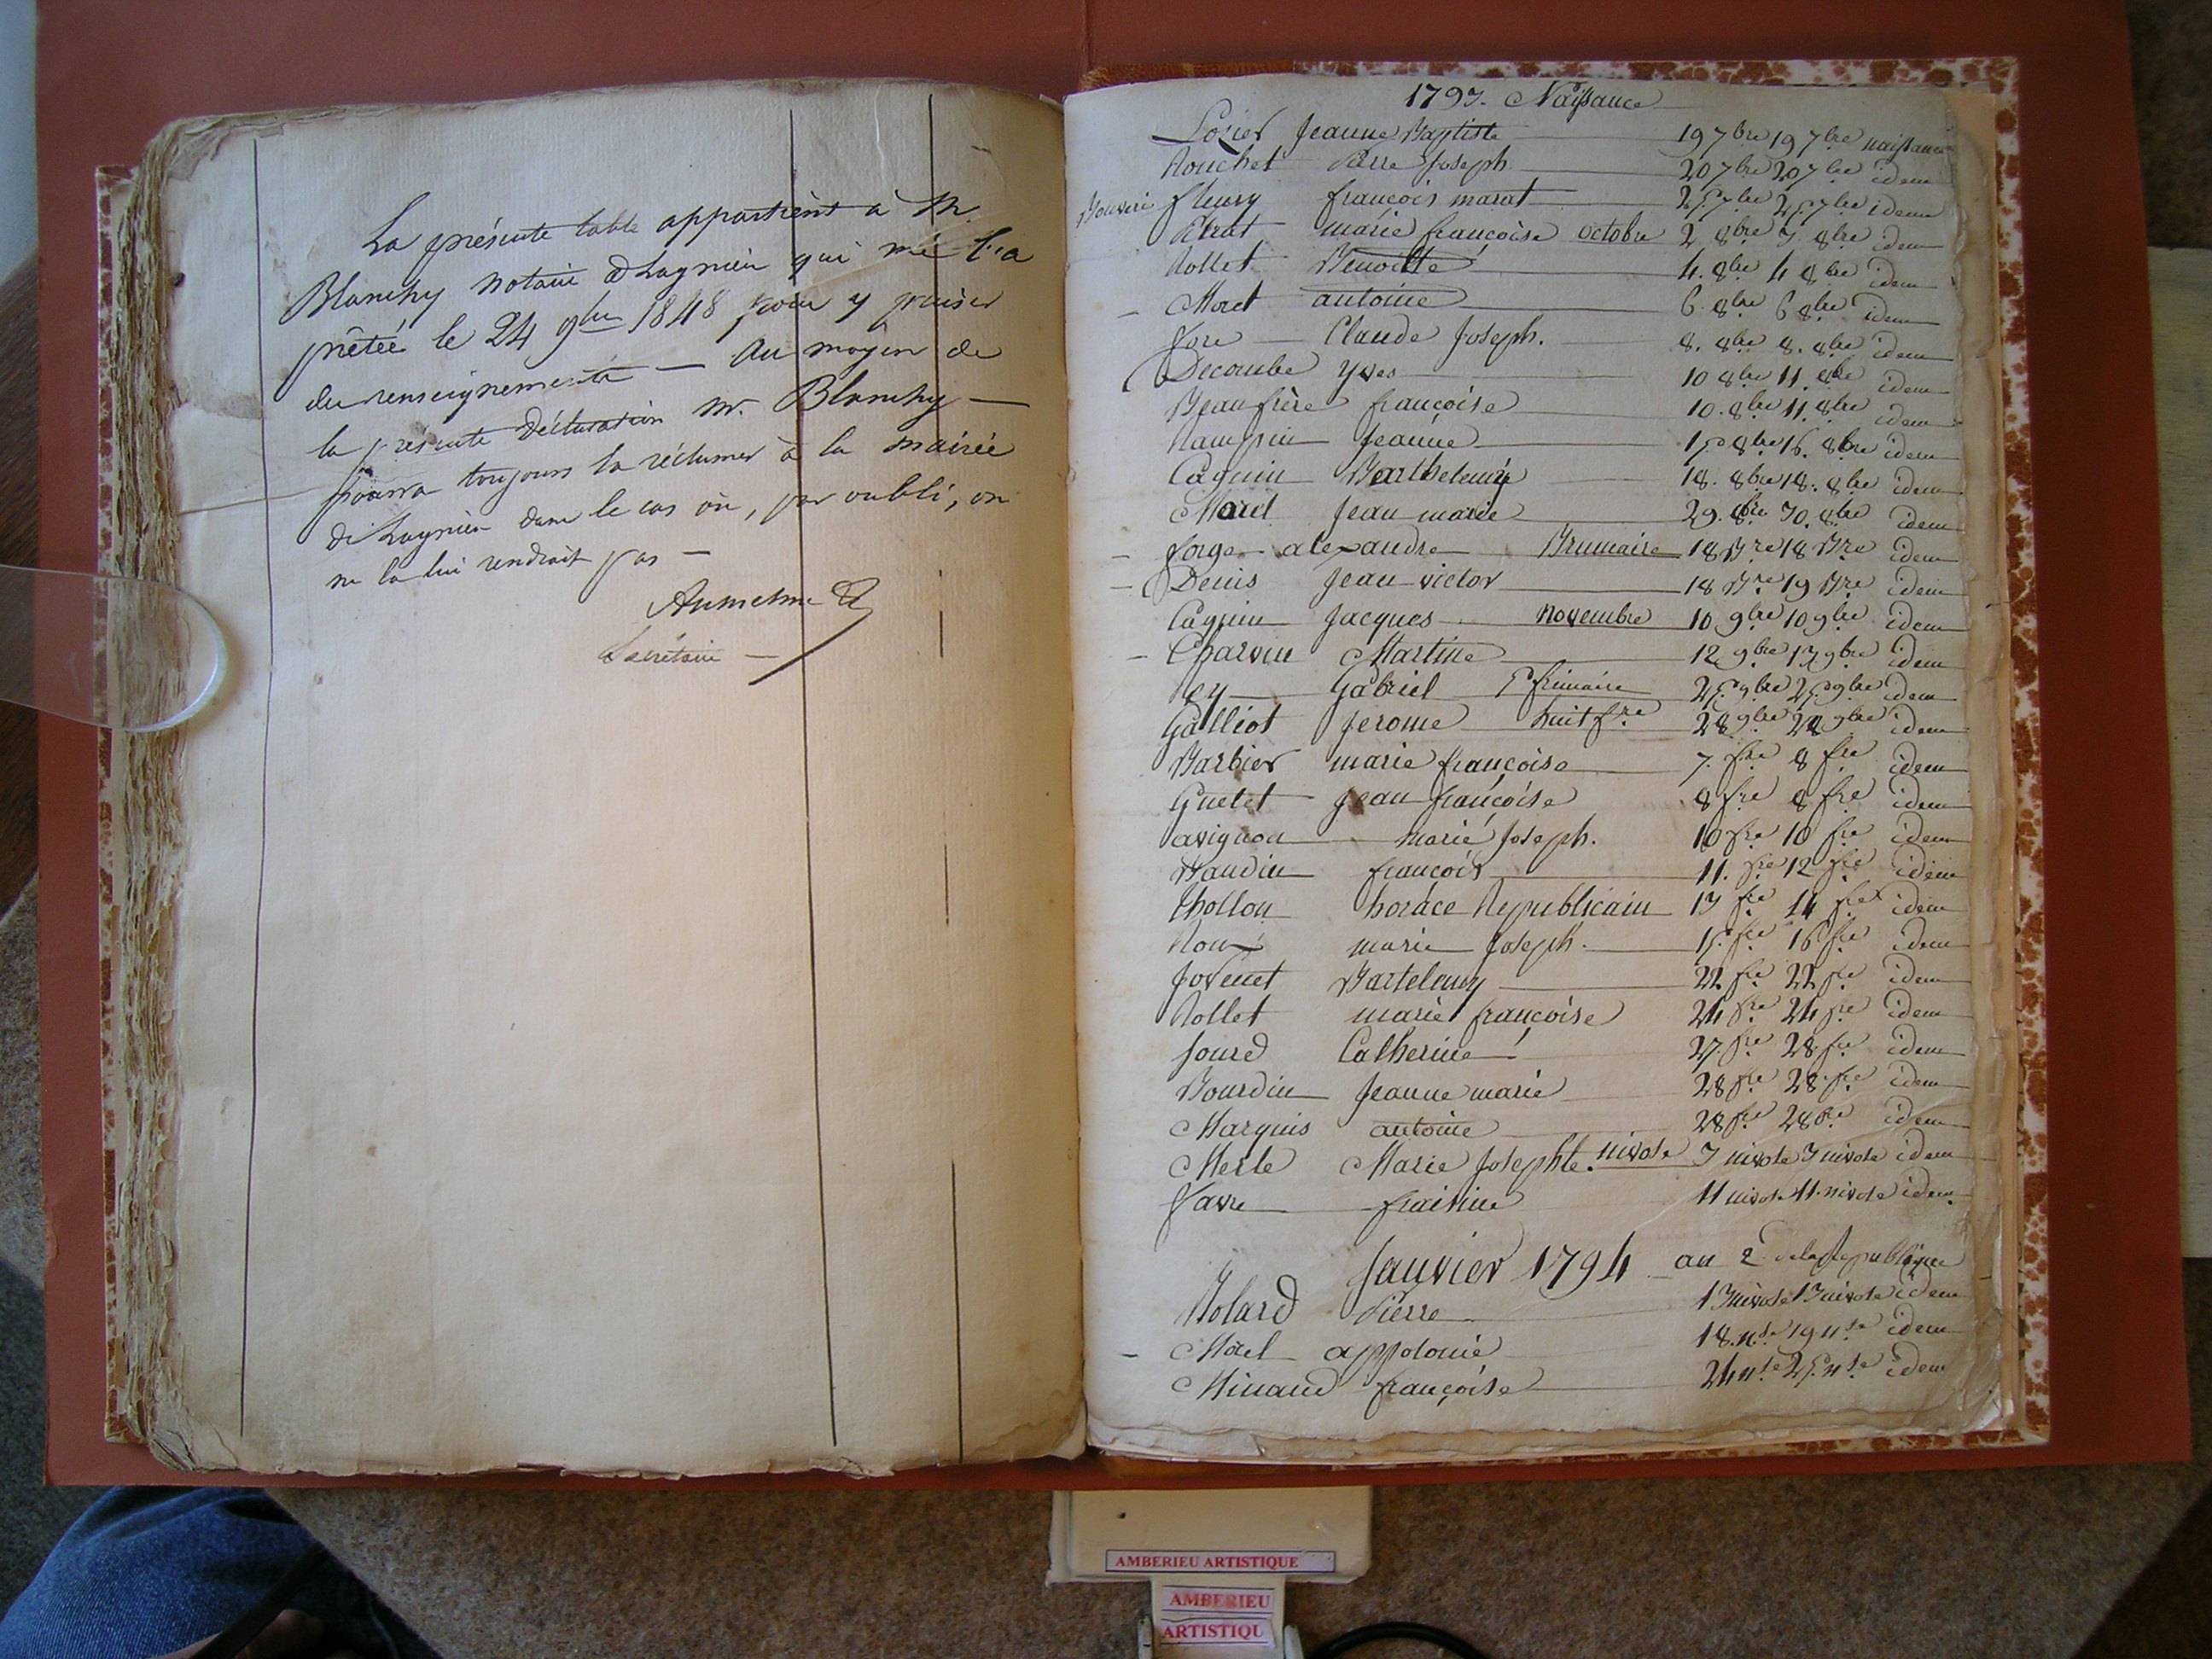 La présente table appartient à M.
Blanchy notaire à Lagnieu qui me l'a
prêtée le 24 9bre 1848 pour y puiser
des renseignements — Au moyen de
la présente déclaration M. Blanchy —
pourra toujours la réclamer à la mairie
de Lagnieu dans le cas où, par oubli, on
ne la lui rendrait pas —
Secrétaire —
1793. Naissance
Lozier Jeanne Baptiste 19 7bre 19 7bre naissance
Rouchet Pierre Joseph 20 7bre 20 7bre idem
fleury françois marat 25 7bre 25 7bre idem
Pétrat marie françoise octobre 2 8bre 3 8bre idem
Rollet Benoitte 4. 8bre 4 8bre idem
Moret antoine 6. 8bre 6 8bre idem
Jore Claude Joseph. 8. 8bre 8. 8bre idem
Decombe Yves 10 8bre 11. 8bre idem
Beaufrère françoise 10. 8bre 11. 8bre idem
Jeanne 15 8bre 16. 8bre idem
Cagnin Barthelemy 18. 8bre 18. 8bre idem
Morel Jean marie 29. 8bre 30. 8bre idem
forge alexandre Brumaire 18 Bre 18 Bre idem
Denis Jean victor 18 Bre 19 Bre idem
Cagnin Jacques novembre 10 9bre 10 9bre idem
Charvin Martine 12 9bre 13 9bre idem
Rey Gabriel 5 frimaire 25 9bre 25 9bre idem
Galliot Jerome huit fre 28 9bre 28 9bre idem
Barbier marie françoise 7. fre 8 fre idem
Guelet Jean françoise 8 fre 8 fre idem
avignon marie Joseph. 10 fre 10 fre idem
Baudin françois 11. fre 12 fre idem
Chollon horace Republicain 13 fre 14 fre idem
Roux marie Joseph. 15. fre 16 fre idem
Jovenet Bartelemy 22 fre 22 fre idem
Rollet marie françoise 24 fre 24 fre idem
Joured Catherine 27. fre 28 fre idem
Bourdin Jeanne marie 28 fre 28. fre idem
Marquis antoine 28 fre 28 fre idem
Merle Marie Josephte. nivose 3 nivose 3 nivose idem
favre 11 nivose 11. nivose idem
Janvier 1794 an 2 de la Republique
Bolard Pierre 13 nivose 13 nivose idem
Morel appolonie 18. nse 19 nse idem
Minaud françoise 24 nse 25. nse idem
AMBERIEU ARTISTIQUE
AMBERIEU
ARTISTIQU